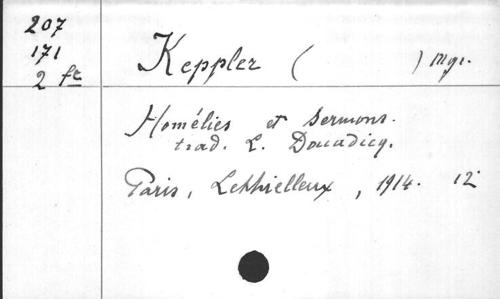 207
171
2 ft
Keppler ( ) Mgr.
Homélies et Sermons.
trad. L. Douadicq.
Paris, Lethielleux, 1914. 12°